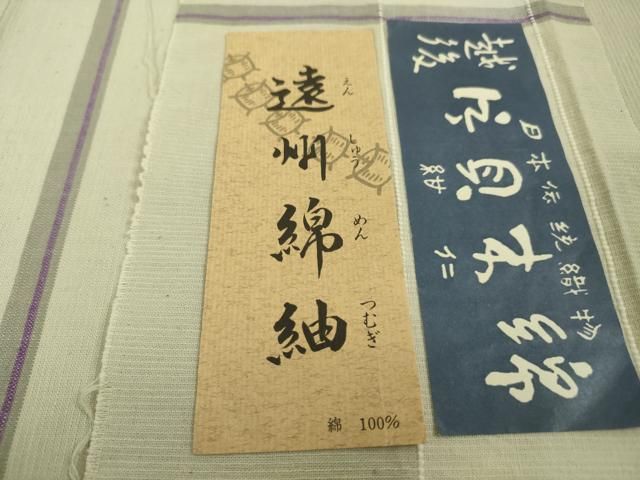 遠州綿紬
えん しゅう めん つむぎ
綿 100%
日本伝統織物
越後
片貝木綿
紺仁